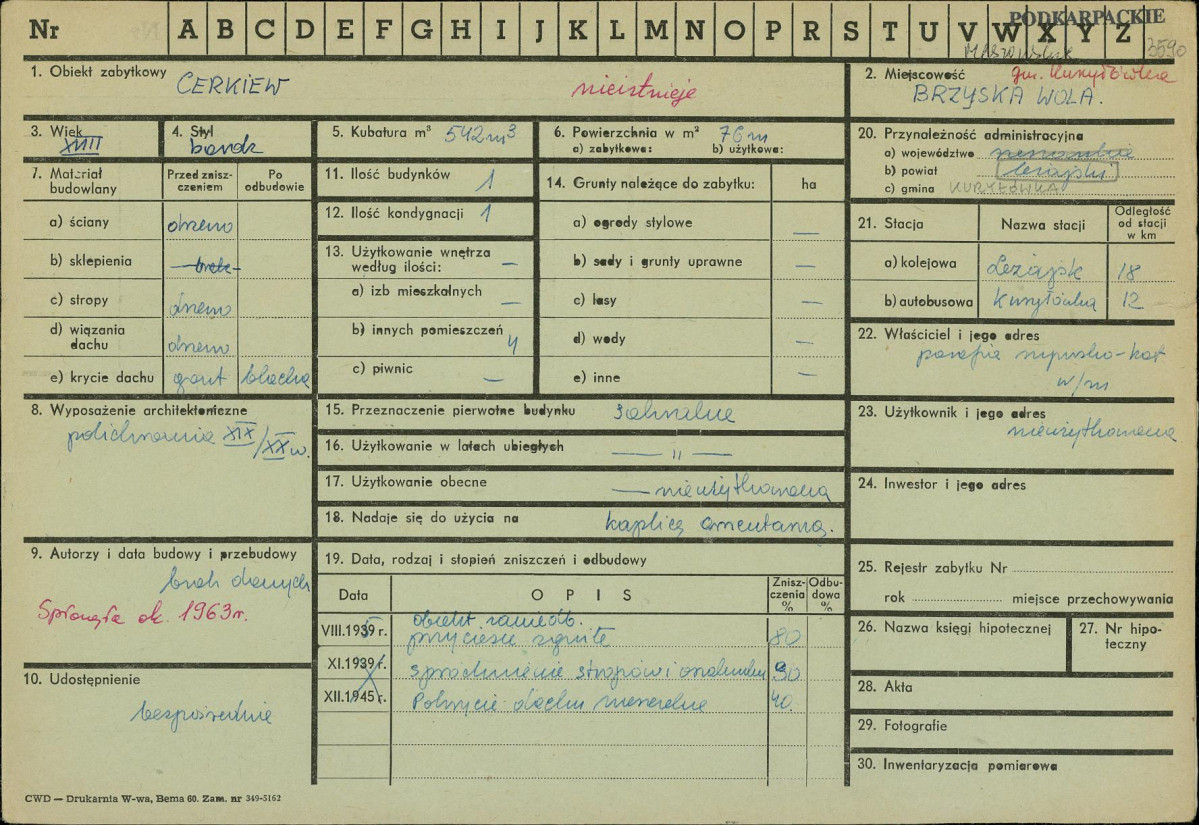 Nr A B C D E F G H I J K L M N O P R S T U V W X Y Z
PODKARPACKIE
3590
1. Obiekt zabytkowy CERKIEW nieistnieje
2. Miejscowość gm. Kuryłówka
BRZYSKA WOLA.
3. Wiek XVIII
4. Styl barok
5. Kubatura m³ 542 m³
6. Powierzchnia w m² 76 m
a) zabytkowa: b) użytkowa:
20. Przynależność administracyjna
a) województwo rzeszowskie
b) powiat leżajski
c) gmina KURYŁÓWKA
7. Materiał budowlany
Przed zniszczeniem
Po odbudowie
a) ściany drzewo
b) sklepienia — brak —
c) stropy drzewo
d) wiązania dachu drzewo
e) krycie dachu gont blacha
11. Ilość budynków 1
12. Ilość kondygnacji 1
13. Użytkowanie wnętrza według ilości: —
a) izb mieszkalnych —
b) innych pomieszczeń 4
c) piwnic —
14. Grunty należące do zabytku: ha
a) ogrody stylowe —
b) sady i grunty uprawne —
c) lasy —
d) wody —
e) inne —
21. Stacja Nazwa stacji Odległość od stacji w km
a) kolejowa Leżajsk 18
b) autobusowa Kuryłówka 12
22. Właściciel i jego adres
parafia rzymsko-kat
w/m
8. Wyposażenie architektoniczne
polichromia XIX/XX w.
15. Przeznaczenie pierwotne budynku sakralne
16. Użytkowanie w latach ubiegłych — " —
17. Użytkowanie obecne — nieużytkowana
18. Nadaje się do użycia na kaplicę cmentarną.
23. Użytkownik i jego adres
nieużytkowana
24. Inwestor i jego adres
9. Autorzy i data budowy i przebudowy
brak danych
Spłonęła ok. 1963 r.
19. Data, rodzaj i stopień zniszczeń i odbudowy
Data OPIS Zniszczenia % Odbudowa %
VIII.1939 r. obiekt zaniedb.
przyciesie zgniłe 80
XI.1939 r. spróchnienie stropów i 90
XII.1945 r. Pokrycie dachu 40
25. Rejestr zabytku Nr
rok miejsce przechowywania
26. Nazwa księgi hipotecznej
27. Nr hipoteczny
10. Udostępnienie
bezpośrednie
28. Akta
29. Fotografie
30. Inwentaryzacja pomiarowa
CWD — Drukarnia W-wa, Bema 60. Zam. nr 349-5162